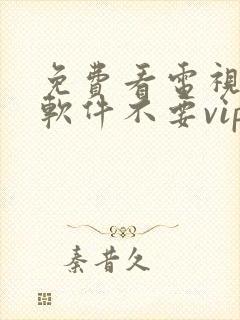 免費看電視
軟件不要vip
秦昔久